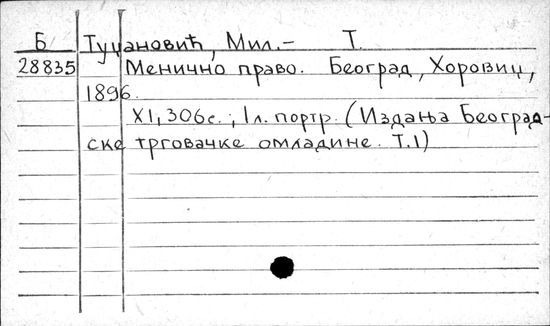 Б Туцановић, Мил.- Т.
28835 Менично право. Београд, Хоровиц,
1896.
XI, 306с.; 1л. портр. (Издања Београд-
ске трговачке омладине. Т.1)